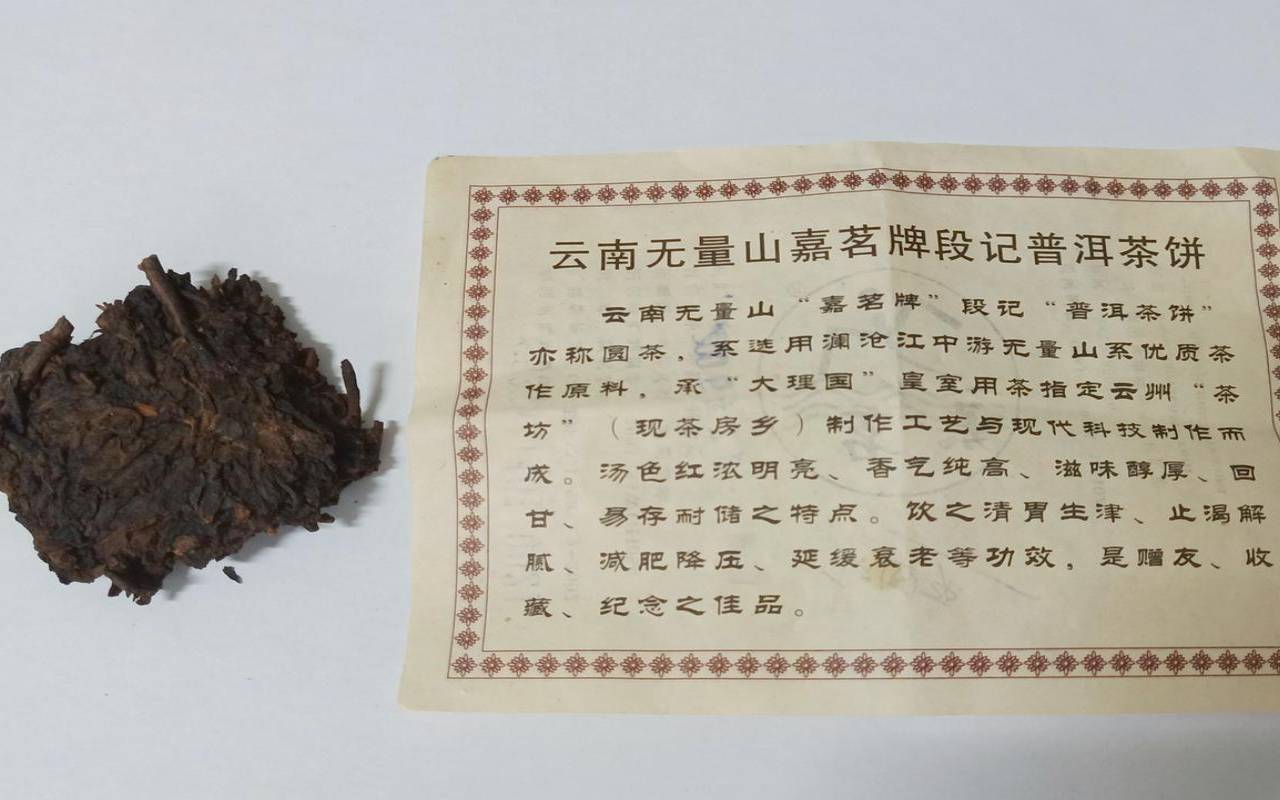 云南无量山嘉茗牌段记普洱茶饼
云南无量山“嘉茗牌”段记“普洱茶饼”
亦称圆茶，系选用澜沧江中游无量山系优质茶
作原料，承“大理国”皇室用茶指定云州“茶
坊”（现茶房乡）制作工艺与现代科技制作而
成。汤色红浓明亮、香气纯高、滋味醇厚、回
甘、易存耐储之特点。饮之清胃生津、止渴解
腻、减肥降压、延缓衰老等功效，是赠友、收
藏、纪念之佳品。